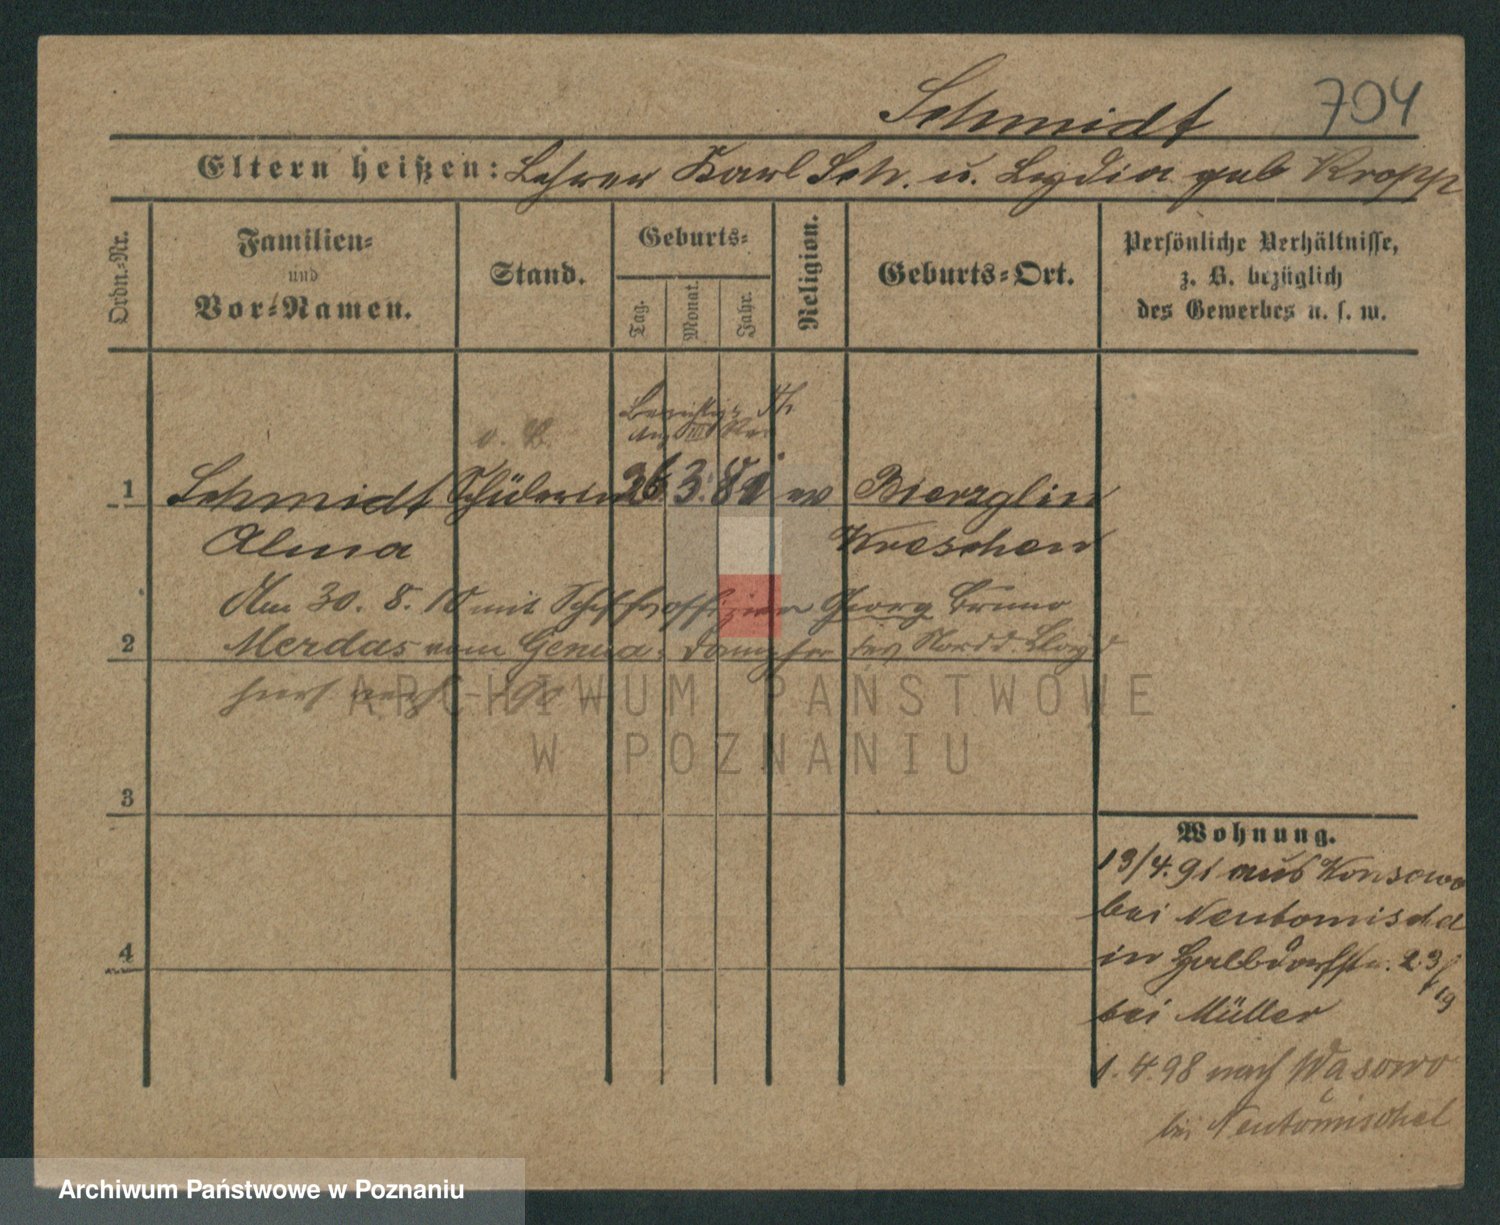 Schmidt 704
Eltern heißen: Lehrer Karl Sch. u. Lydia geb Kropp
Ordn.-Nr.
Familien-
und
Vor-Namen.
Stand.
Geburts-
Tag.
Monat.
Jahr.
Religion.
Geburts-Ort.
Persönliche Verhältnisse,
z. B. bezüglich
des Gewerbes u. s. w.
1 Schmidt Schülerin 26. 3. 81 ev Bierzglin
Alma Wreschen
Am 30. 8. 10 mit Schiffsoffizier Georg Bruno
2 Merdas vom Genua: Dampfer des Nordd. Lloyd
3
4
Wohnung.
13/4. 91 aus Konsowo
bei Neutomischel
in Halbdorfstr. 23/
19
bei Müller
1. 4. 98 nach Wasowo
bei Neutomischel
ARCHIWUM PAŃSTWOWE
W POZNANIU
Archiwum Państwowe w Poznaniu